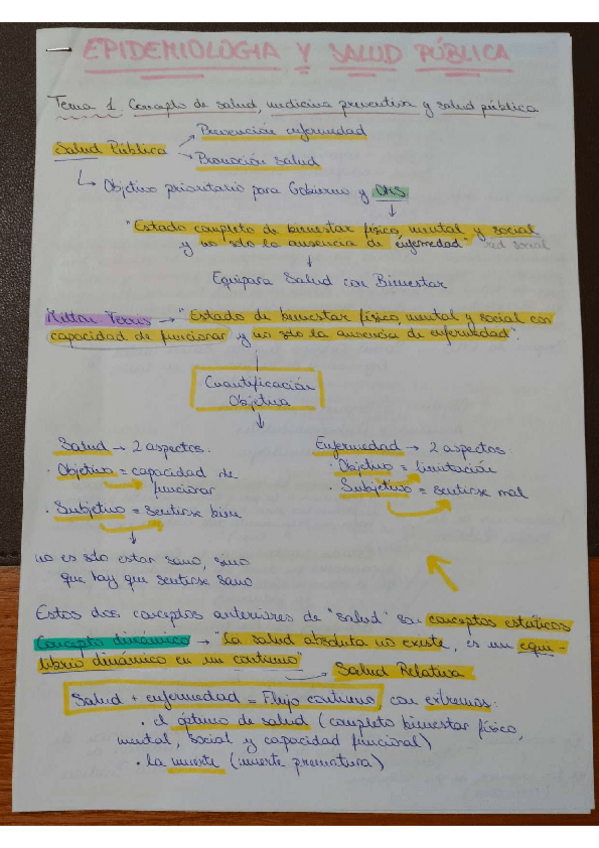 EPIDEMIOLOGIA Y SALUD PÚBLICA
Tema 1. Concepto de salud, medicina preventiva y salud pública
Prevención enfermedad
Salud Pública
Promoción salud
Objetivo prioritario para Gobierno y OMS
"Estado completo de bienestar físico, mental y social
y no sólo la ausencia de enfermedad" red social
Equipara Salud con Bienestar
Milton Terris → "Estado de bienestar físico, mental y social con
capacidad de funcionar y no sólo la ausencia de enfermedad".
Cuantificación
Objetiva
Salud → 2 aspectos:
· Objetivo = capacidad de
funcionar
· Subjetivo = sentirse bien
no es sólo estar sano, sino
que hay que sentirse sano
Enfermedad → 2 aspectos:
· Objetivo = limitación
· Subjetivo = sentirse mal
Estos dos conceptos anteriores de "salud" son conceptos estáticos
Concepto dinámico → "La salud absoluta no existe, es un equi-
librio dinámico en un continuo"
Salud Relativa
Salud + enfermedad = Flujo continuo, con extremos:
· el óptimo de salud (completo bienestar físico,
mental, social y capacidad funcional)
· la muerte (muerte prematura)